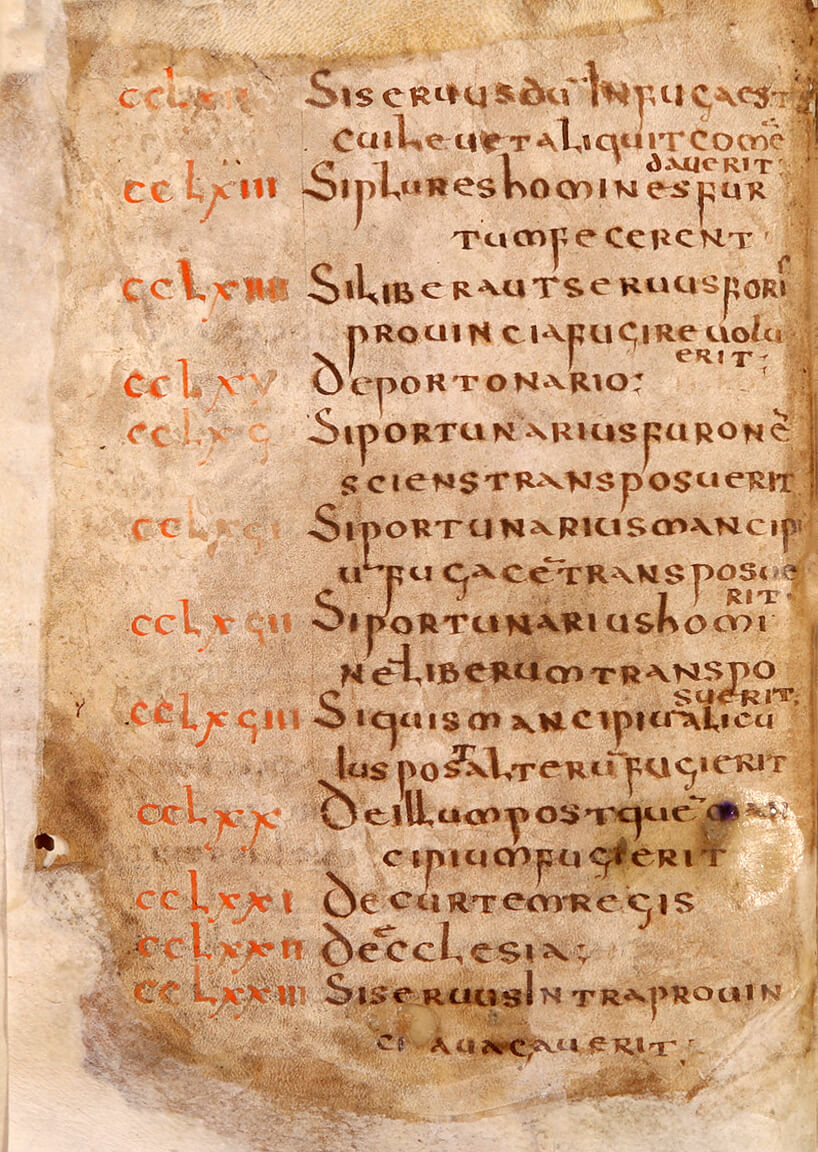 cclxii Si seruus dū in fuga est
cuileuet aliquit comē
dauerit
cclxiii Si plures homines fur
tum fecerent
cclxiiii Si liber aut seruus foris
prouincia fugire uolu
erit:
cclxv De portonario:
cclxϛ Si portunarius furonē
sciens transposuerit
cclxϛi Si portunarius mancipi
ū fugacē transposue
rit
cclxϛii Si portunarius homi
nē liberum transpo
suerit:
cclxϛiii Si quis mancipiū alicu
ius post alterū fugierit
cclxx De illum post quē man
cipium fugierit
cclxxi De curtem regis
cclxxii De ecclesia:
cclxxiii Si seruus intra prouin
cia uagauerit: